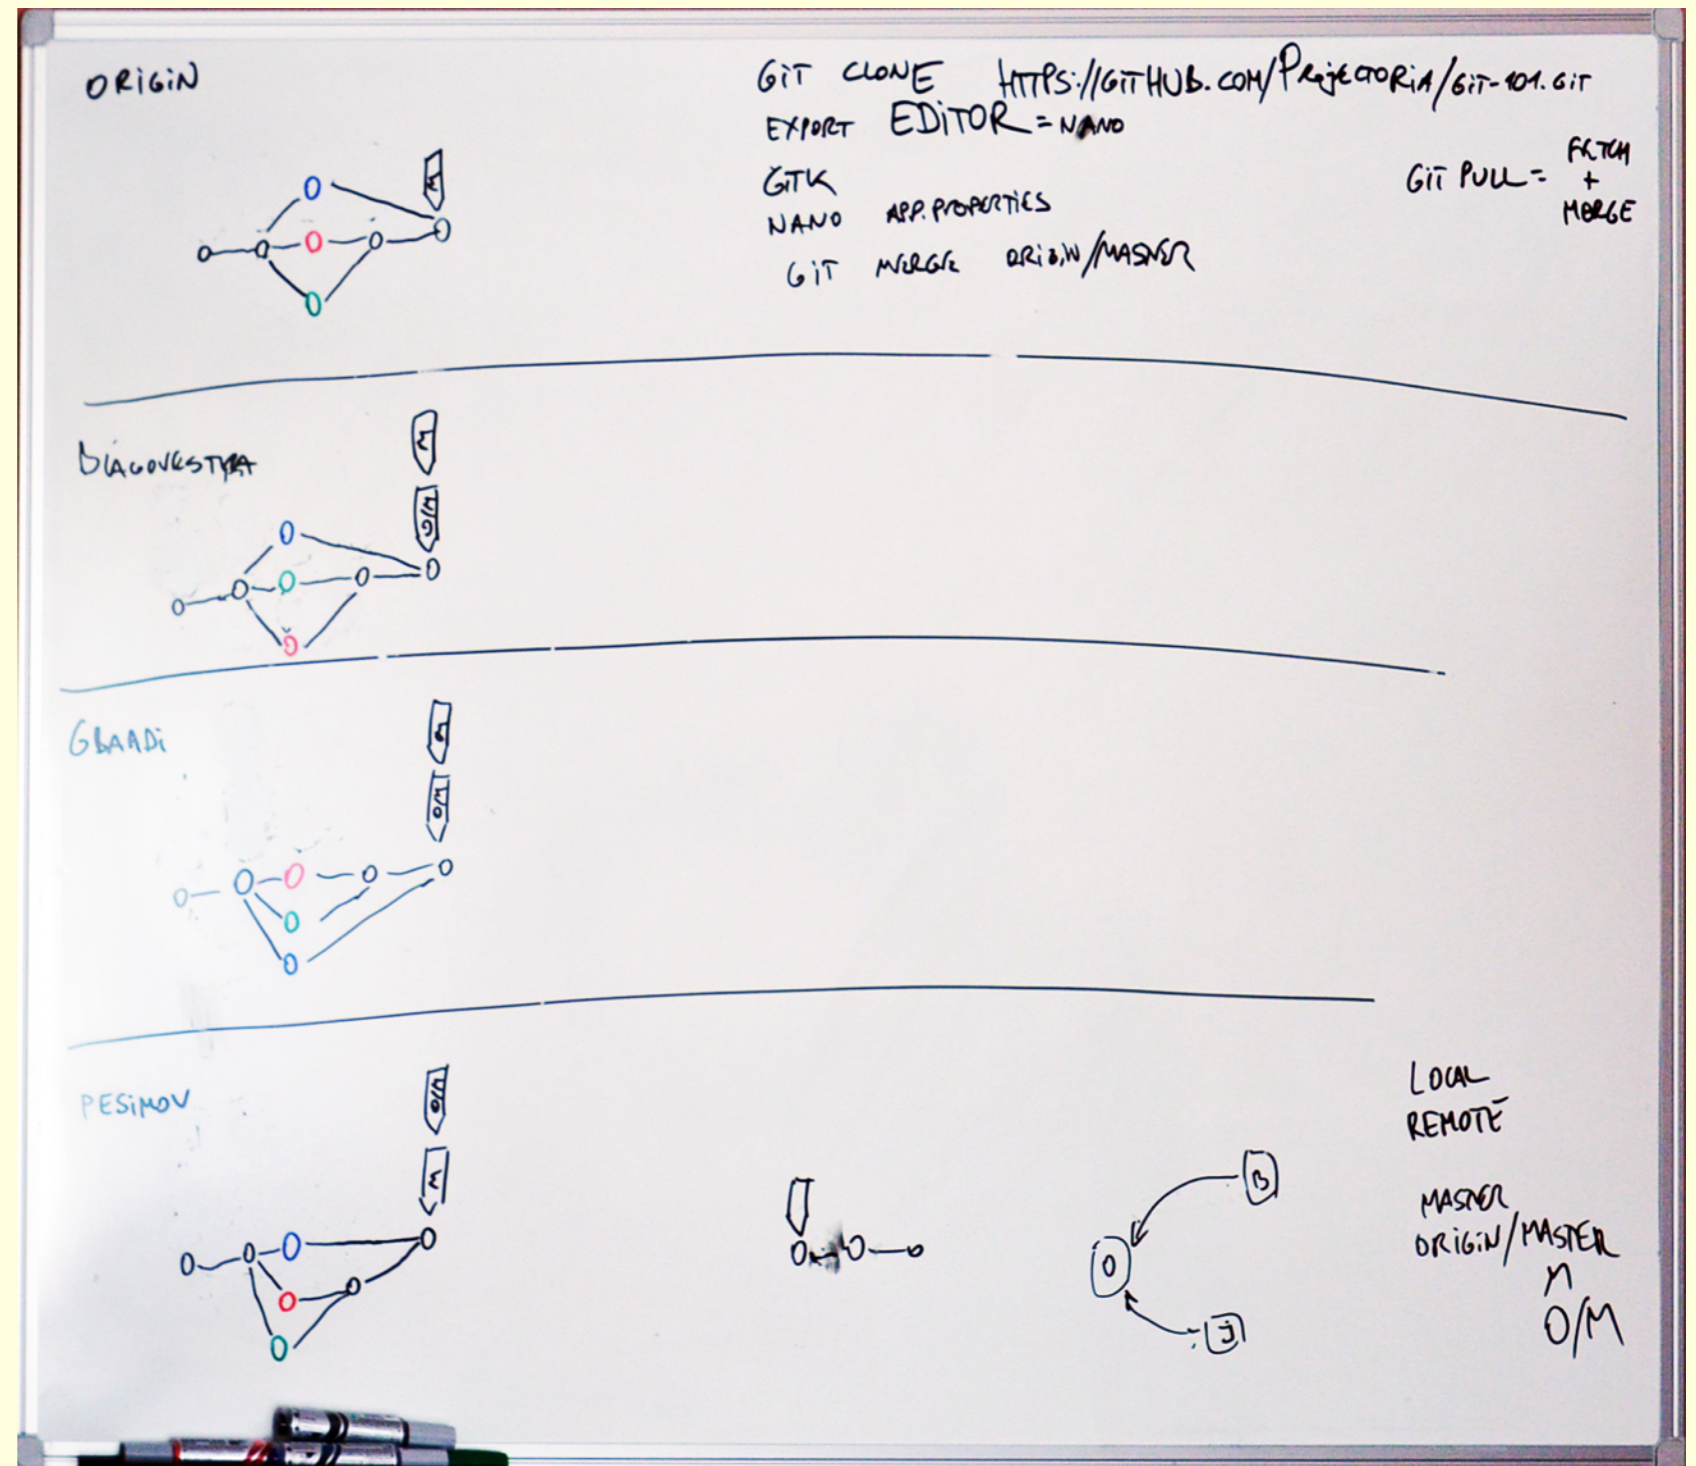 ORIGIN
M
GIT CLONE HTTPS://GITHUB.COM/PROJECTORIA/GIT-101.GIT
EXPORT EDITOR=NANO
GITK
NANO APP.PROPERTIES
GIT MERGE ORIGIN/MASTER
GIT PULL = FETCH
+
MERGE
M
O/M
GBAADI
M
O/M
PESIMOV
O/M
M
B
O
J
LOCAL
REMOTE
MASTER
ORIGIN/MASTER
M
O/M